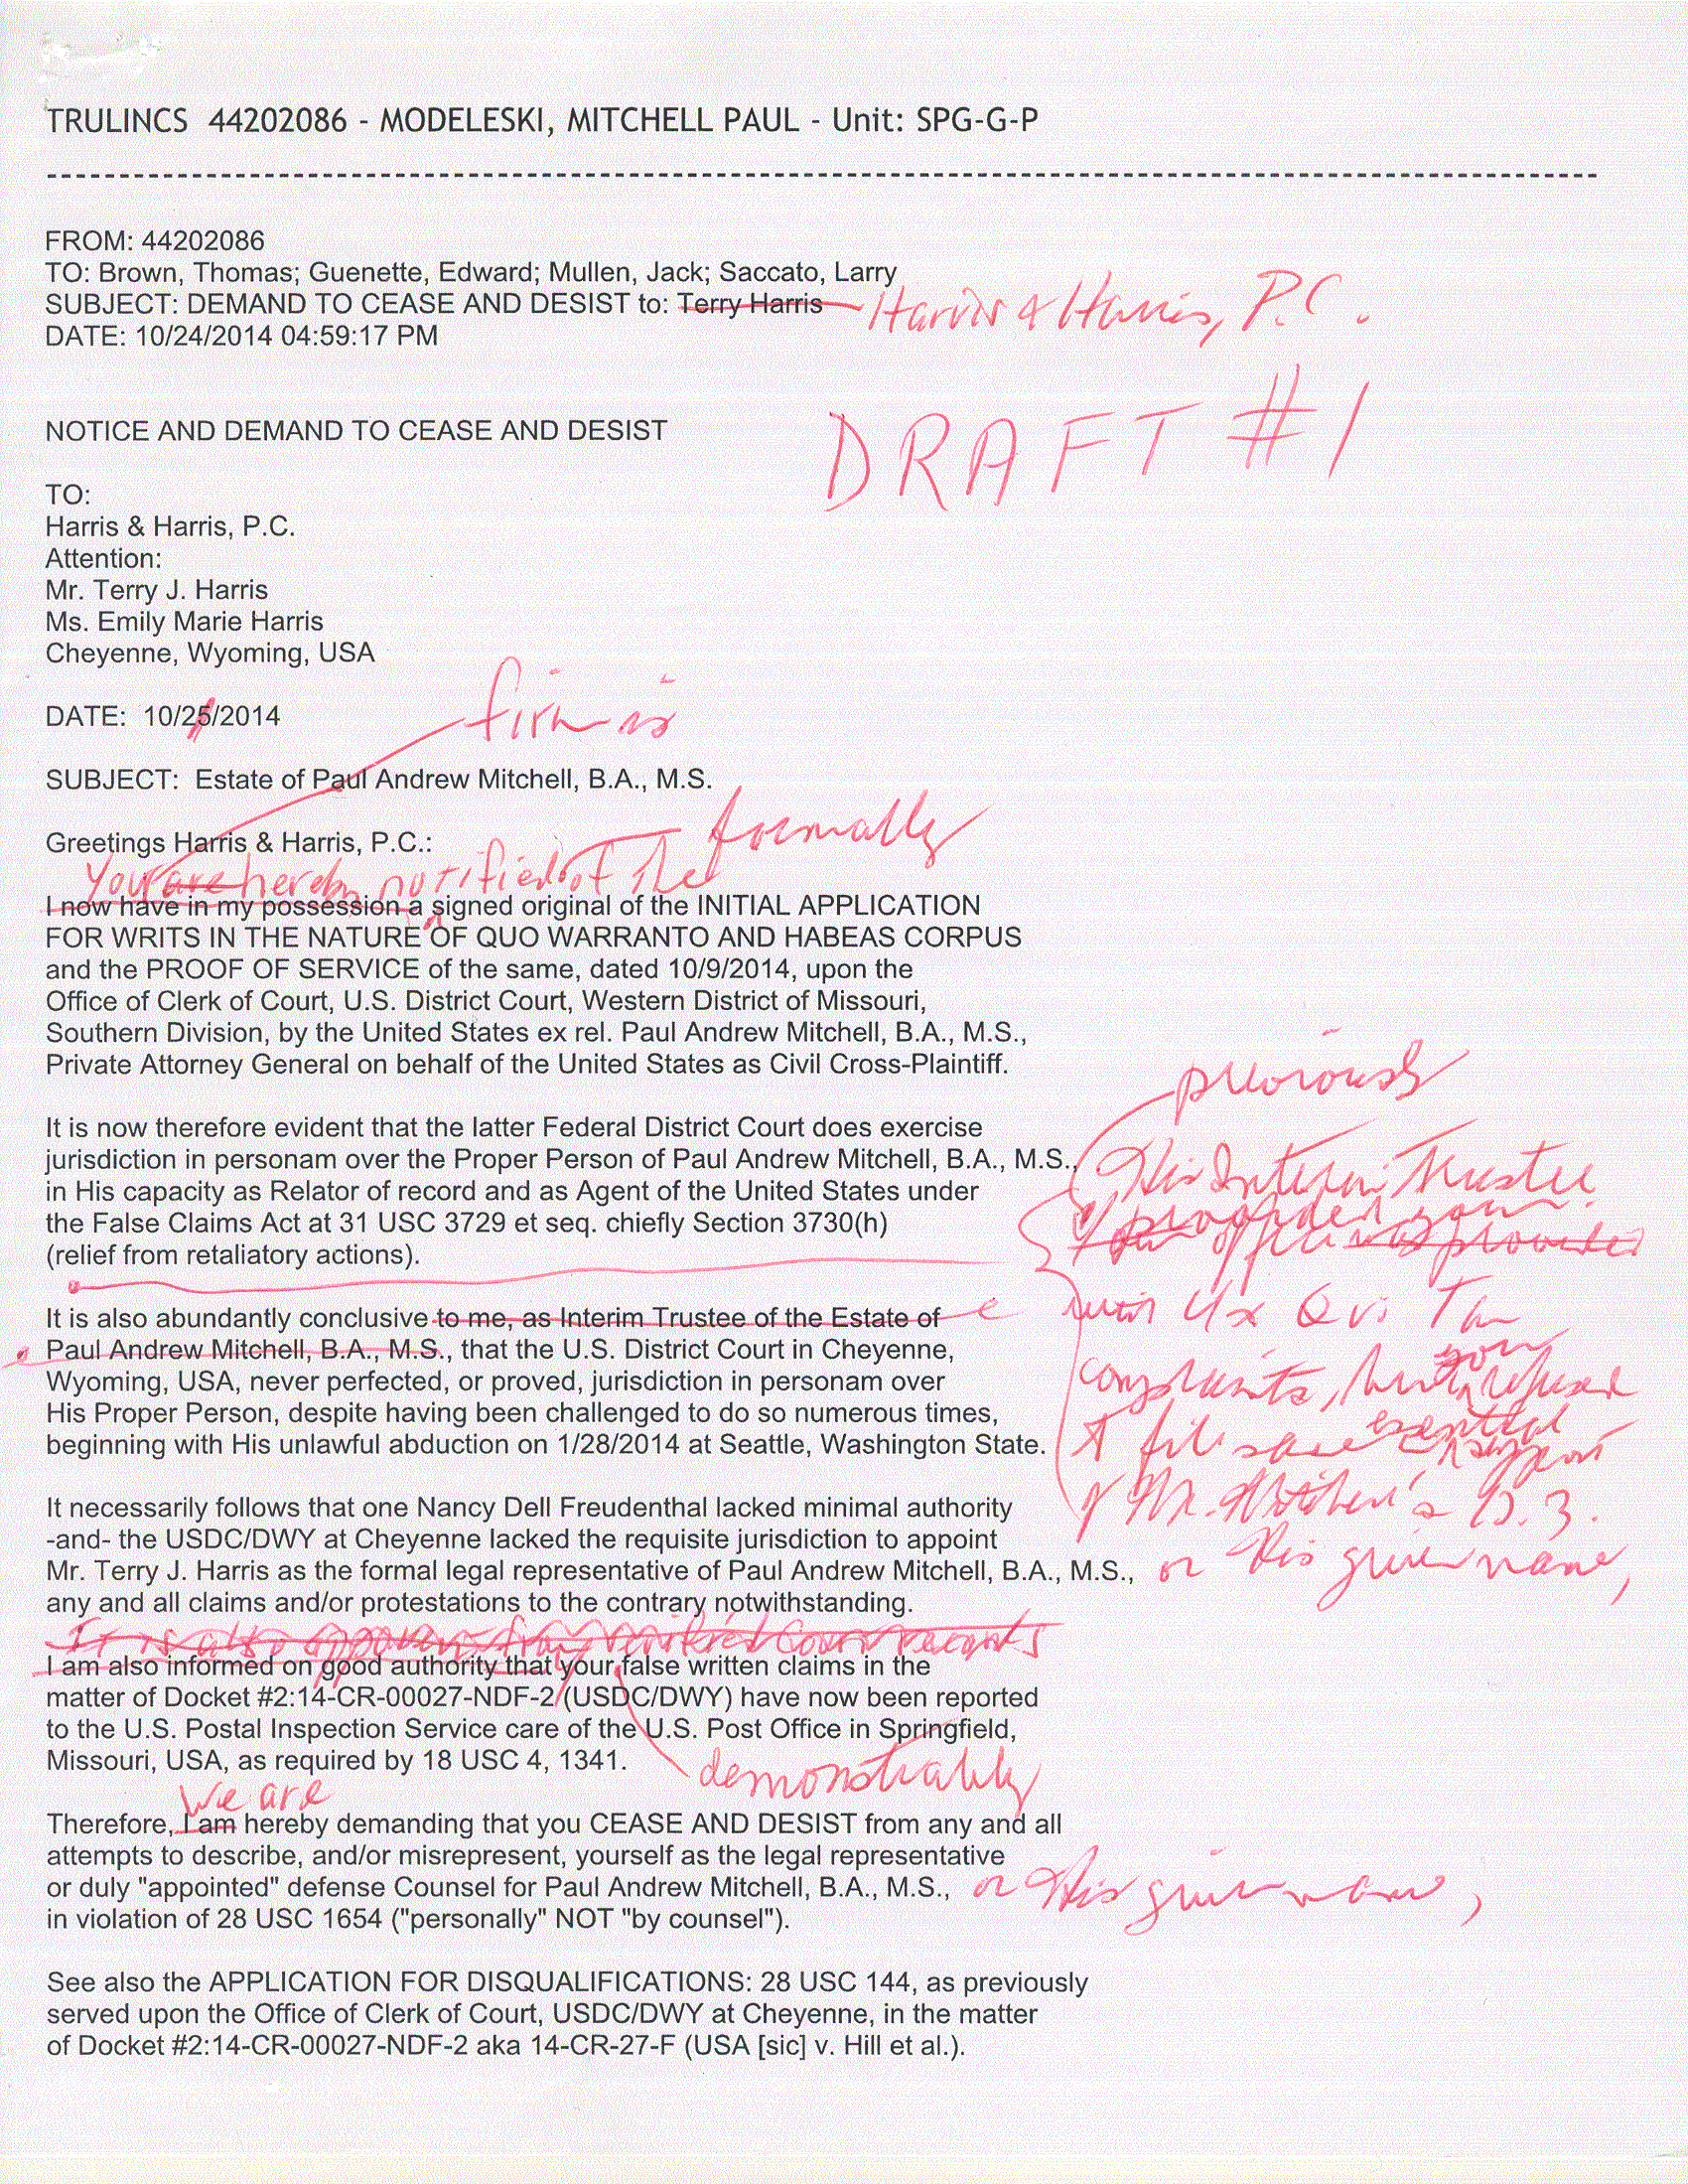 TRULINCS 44202086 - MODELESKI, MITCHELL PAUL - Unit: SPG-G-P
FROM: 44202086
TO: Brown, Thomas; Guenette, Edward; Mullen, Jack; Saccato, Larry
SUBJECT: DEMAND TO CEASE AND DESIST to: Terry Harris Harris & Harris, P.C.
DATE: 10/24/2014 04:59:17 PM
DRAFT #1
NOTICE AND DEMAND TO CEASE AND DESIST
TO:
Harris & Harris, P.C.
Attention:
Mr. Terry J. Harris
Ms. Emily Marie Harris
Cheyenne, Wyoming, USA
firm is
DATE: 10/25/2014
SUBJECT: Estate of Paul Andrew Mitchell, B.A., M.S.
Greetings Harris & Harris, P.C.:
formally
Your are hereby notified of The
I now have in my possession a signed original of the INITIAL APPLICATION
FOR WRITS IN THE NATURE OF QUO WARRANTO AND HABEAS CORPUS
and the PROOF OF SERVICE of the same, dated 10/9/2014, upon the
Office of Clerk of Court, U.S. District Court, Western District of Missouri,
Southern Division, by the United States ex rel. Paul Andrew Mitchell, B.A., M.S.,
Private Attorney General on behalf of the United States as Civil Cross-Plaintiff.
previously
It is now therefore evident that the latter Federal District Court does exercise
jurisdiction in personam over the Proper Person of Paul Andrew Mitchell, B.A., M.S.,
in His capacity as Relator of record and as Agent of the United States under
the False Claims Act at 31 USC 3729 et seq. chiefly Section 3730(h)
(relief from retaliatory actions).
His Interim Trustee
provided your
office was provided
with 4x Qui Tam
complaints, but you refused
to file same essential
support
of Mr. Mitchell's D.3.
It is also abundantly conclusive to me, as Interim Trustee of the Estate of
Paul Andrew Mitchell, B.A., M.S., that the U.S. District Court in Cheyenne,
Wyoming, USA, never perfected, or proved, jurisdiction in personam over
His Proper Person, despite having been challenged to do so numerous times,
beginning with His unlawful abduction on 1/28/2014 at Seattle, Washington State.
It necessarily follows that one Nancy Dell Freudenthal lacked minimal authority
-and- the USDC/DWY at Cheyenne lacked the requisite jurisdiction to appoint
Mr. Terry J. Harris as the formal legal representative of Paul Andrew Mitchell, B.A., M.S., or His given name,
any and all claims and/or protestations to the contrary notwithstanding.
It is also apparent from verified Court records
I am also informed on good authority that your false written claims in the
matter of Docket #2:14-CR-00027-NDF-2 (USDC/DWY) have now been reported
to the U.S. Postal Inspection Service care of the U.S. Post Office in Springfield,
Missouri, USA, as required by 18 USC 4, 1341.
demonstrably
We are
Therefore, I am hereby demanding that you CEASE AND DESIST from any and all
attempts to describe, and/or misrepresent, yourself as the legal representative
or duly "appointed" defense Counsel for Paul Andrew Mitchell, B.A., M.S., or His given name,
in violation of 28 USC 1654 ("personally" NOT "by counsel").
See also the APPLICATION FOR DISQUALIFICATIONS: 28 USC 144, as previously
served upon the Office of Clerk of Court, USDC/DWY at Cheyenne, in the matter
of Docket #2:14-CR-00027-NDF-2 aka 14-CR-27-F (USA [sic] v. Hill et al.).